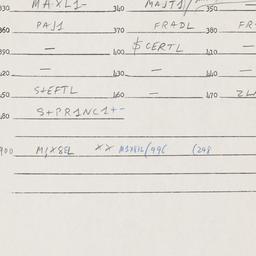 330 MAXL1- 340 MAJT1/ 350 —
360 PAJ1 370 FRADL 380 FR
390 — 400 $CERTL 410 —
420 — 430 — 440 —
450 S+EFTL 460 — 470
480 S+PR1NC1+-
900 M/X8EL XX M1X8IL/496 (248